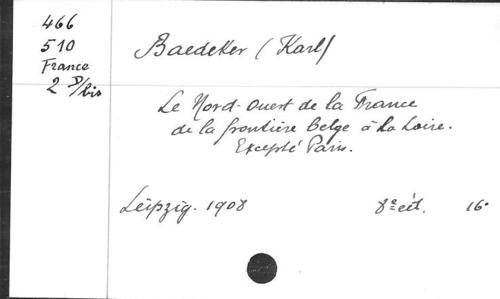 466
510
France
2 D/bis
Baedeker (Karl)
Le Nord-Ouest de la France
de la frontière Belge à la Loire.
Excepté Paris.
Leipzig. 1908 8e éd. 16°